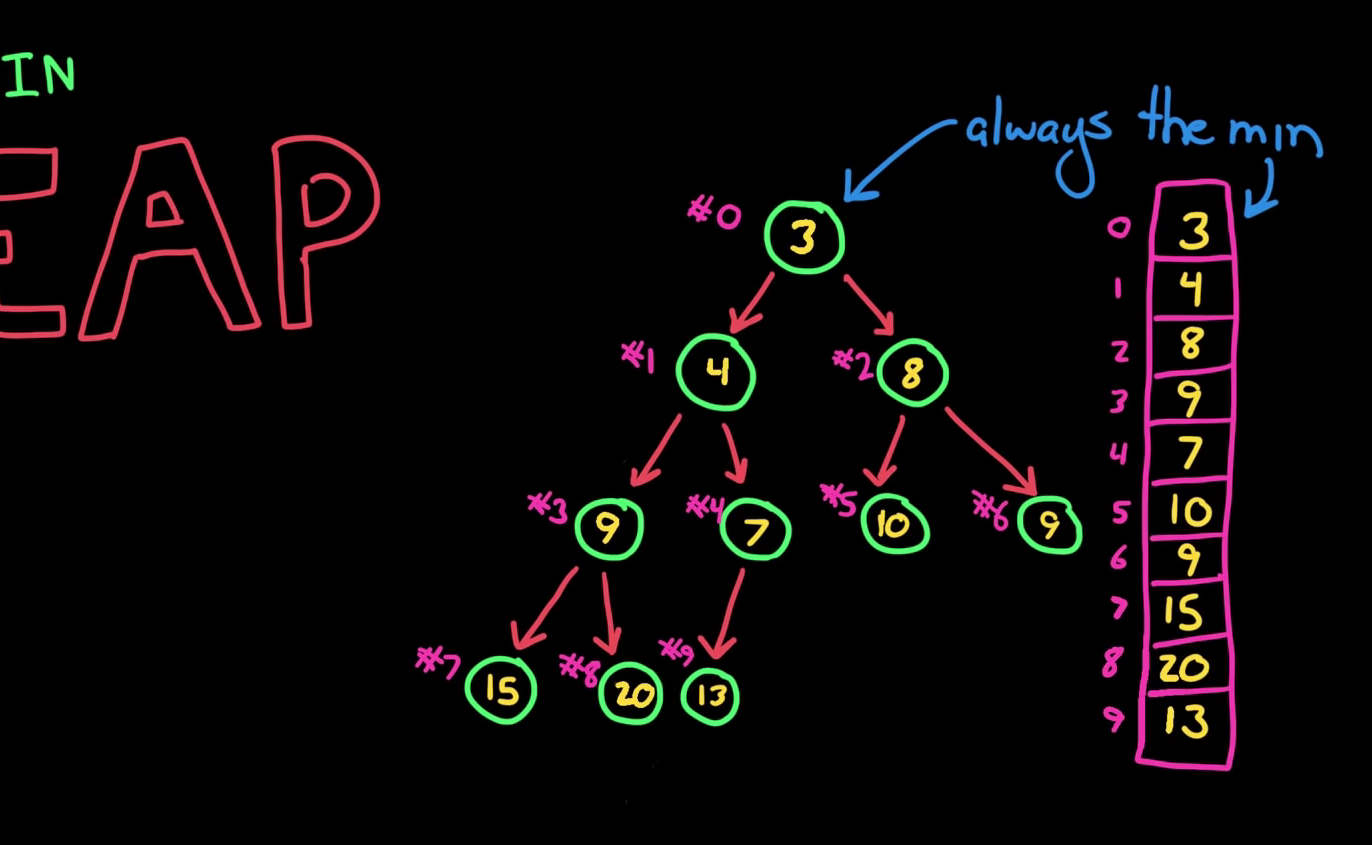 IN
EAP
always the min
#0
3
#1
4
#2
8
#3
9
#4
7
#5
10
#6
9
#7
15
#8
20
#9
13
0 3
1 4
2 8
3 9
4 7
5 10
6 9
7 15
8 20
9 13